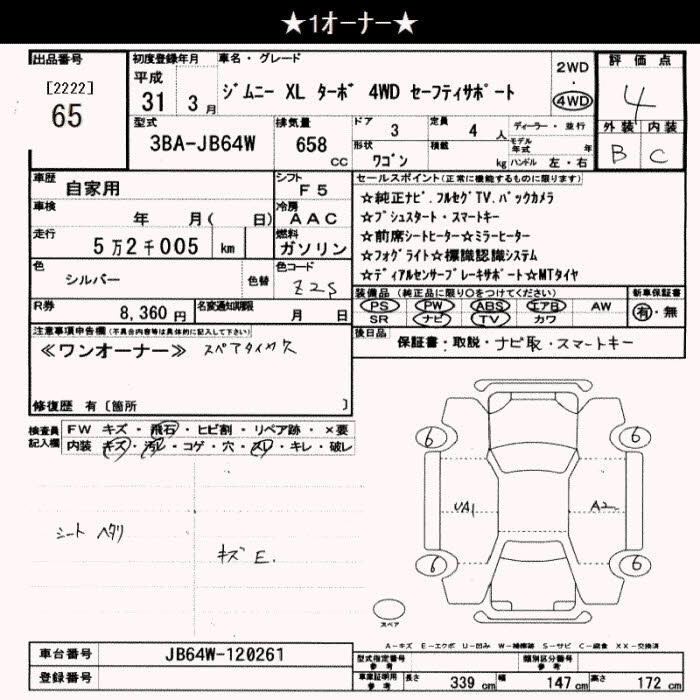 ★1オーナー★
出品番号 初度登録年月 車名・グレード 評価点
[2222] 平成 2WD
65 31 3月 ジムニー XL ターボ 4WD セーフティサポート ・ 4
4WD
型式 排気量 ドア 3 定員 4 人 ディーラー・並行 外装 内装
3BA-JB64W 658 cc 形状 ワゴン 積載 kg モデル年式 年 B C
ハンドル 左・右
車歴 自家用 シフト F5 セールスポイント(正常に機能するものに限ります)
☆純正ナビ.フルセグTV.バックカメラ
車検 年 月( 日) 冷房 AAC ☆プシュスタート・スマートキー
☆前席シートヒーター☆ミラーヒーター
走行 5万2千005 km 燃料 ガソリン ☆フォグライト☆標識認識システム
色 シルバー 色替 色コード Z2S ☆ディアルセンサーブレーキサポート☆MTタイヤ
装備品(純正品に限り○をつけてください) 新車保証書
R券 8,360円 名変通知期限 月 日 PS PW ABS エアB AW 有・無
SR ナビ TV カワ
注意事項申告欄(不具合内容等は具体的に記入して下さい) 後日品 保証書・取説・ナビ取・スマートキー
≪ワンオーナー≫ スペアタイヤ欠
修復歴 有〔箇所 〕
検査員記入欄 FW キズ・飛石・ヒビ割・リペア跡・×要
内装 キズ・汚レ・コゲ・穴・スレ・キレ・破レ
6 6
UA1 A2
シート ヘタリ
キズE.
6 6
スペア
A-キズ E-エクボ U-凹み W-補修跡 S-サビ C-腐食 XX-交換済
車台番号 JB64W-120261 型式指定番号 参考 類別区分番号 参考
登録番号 車庫証明用 参考 長さ 339 cm 幅 147 cm 高さ 172 cm